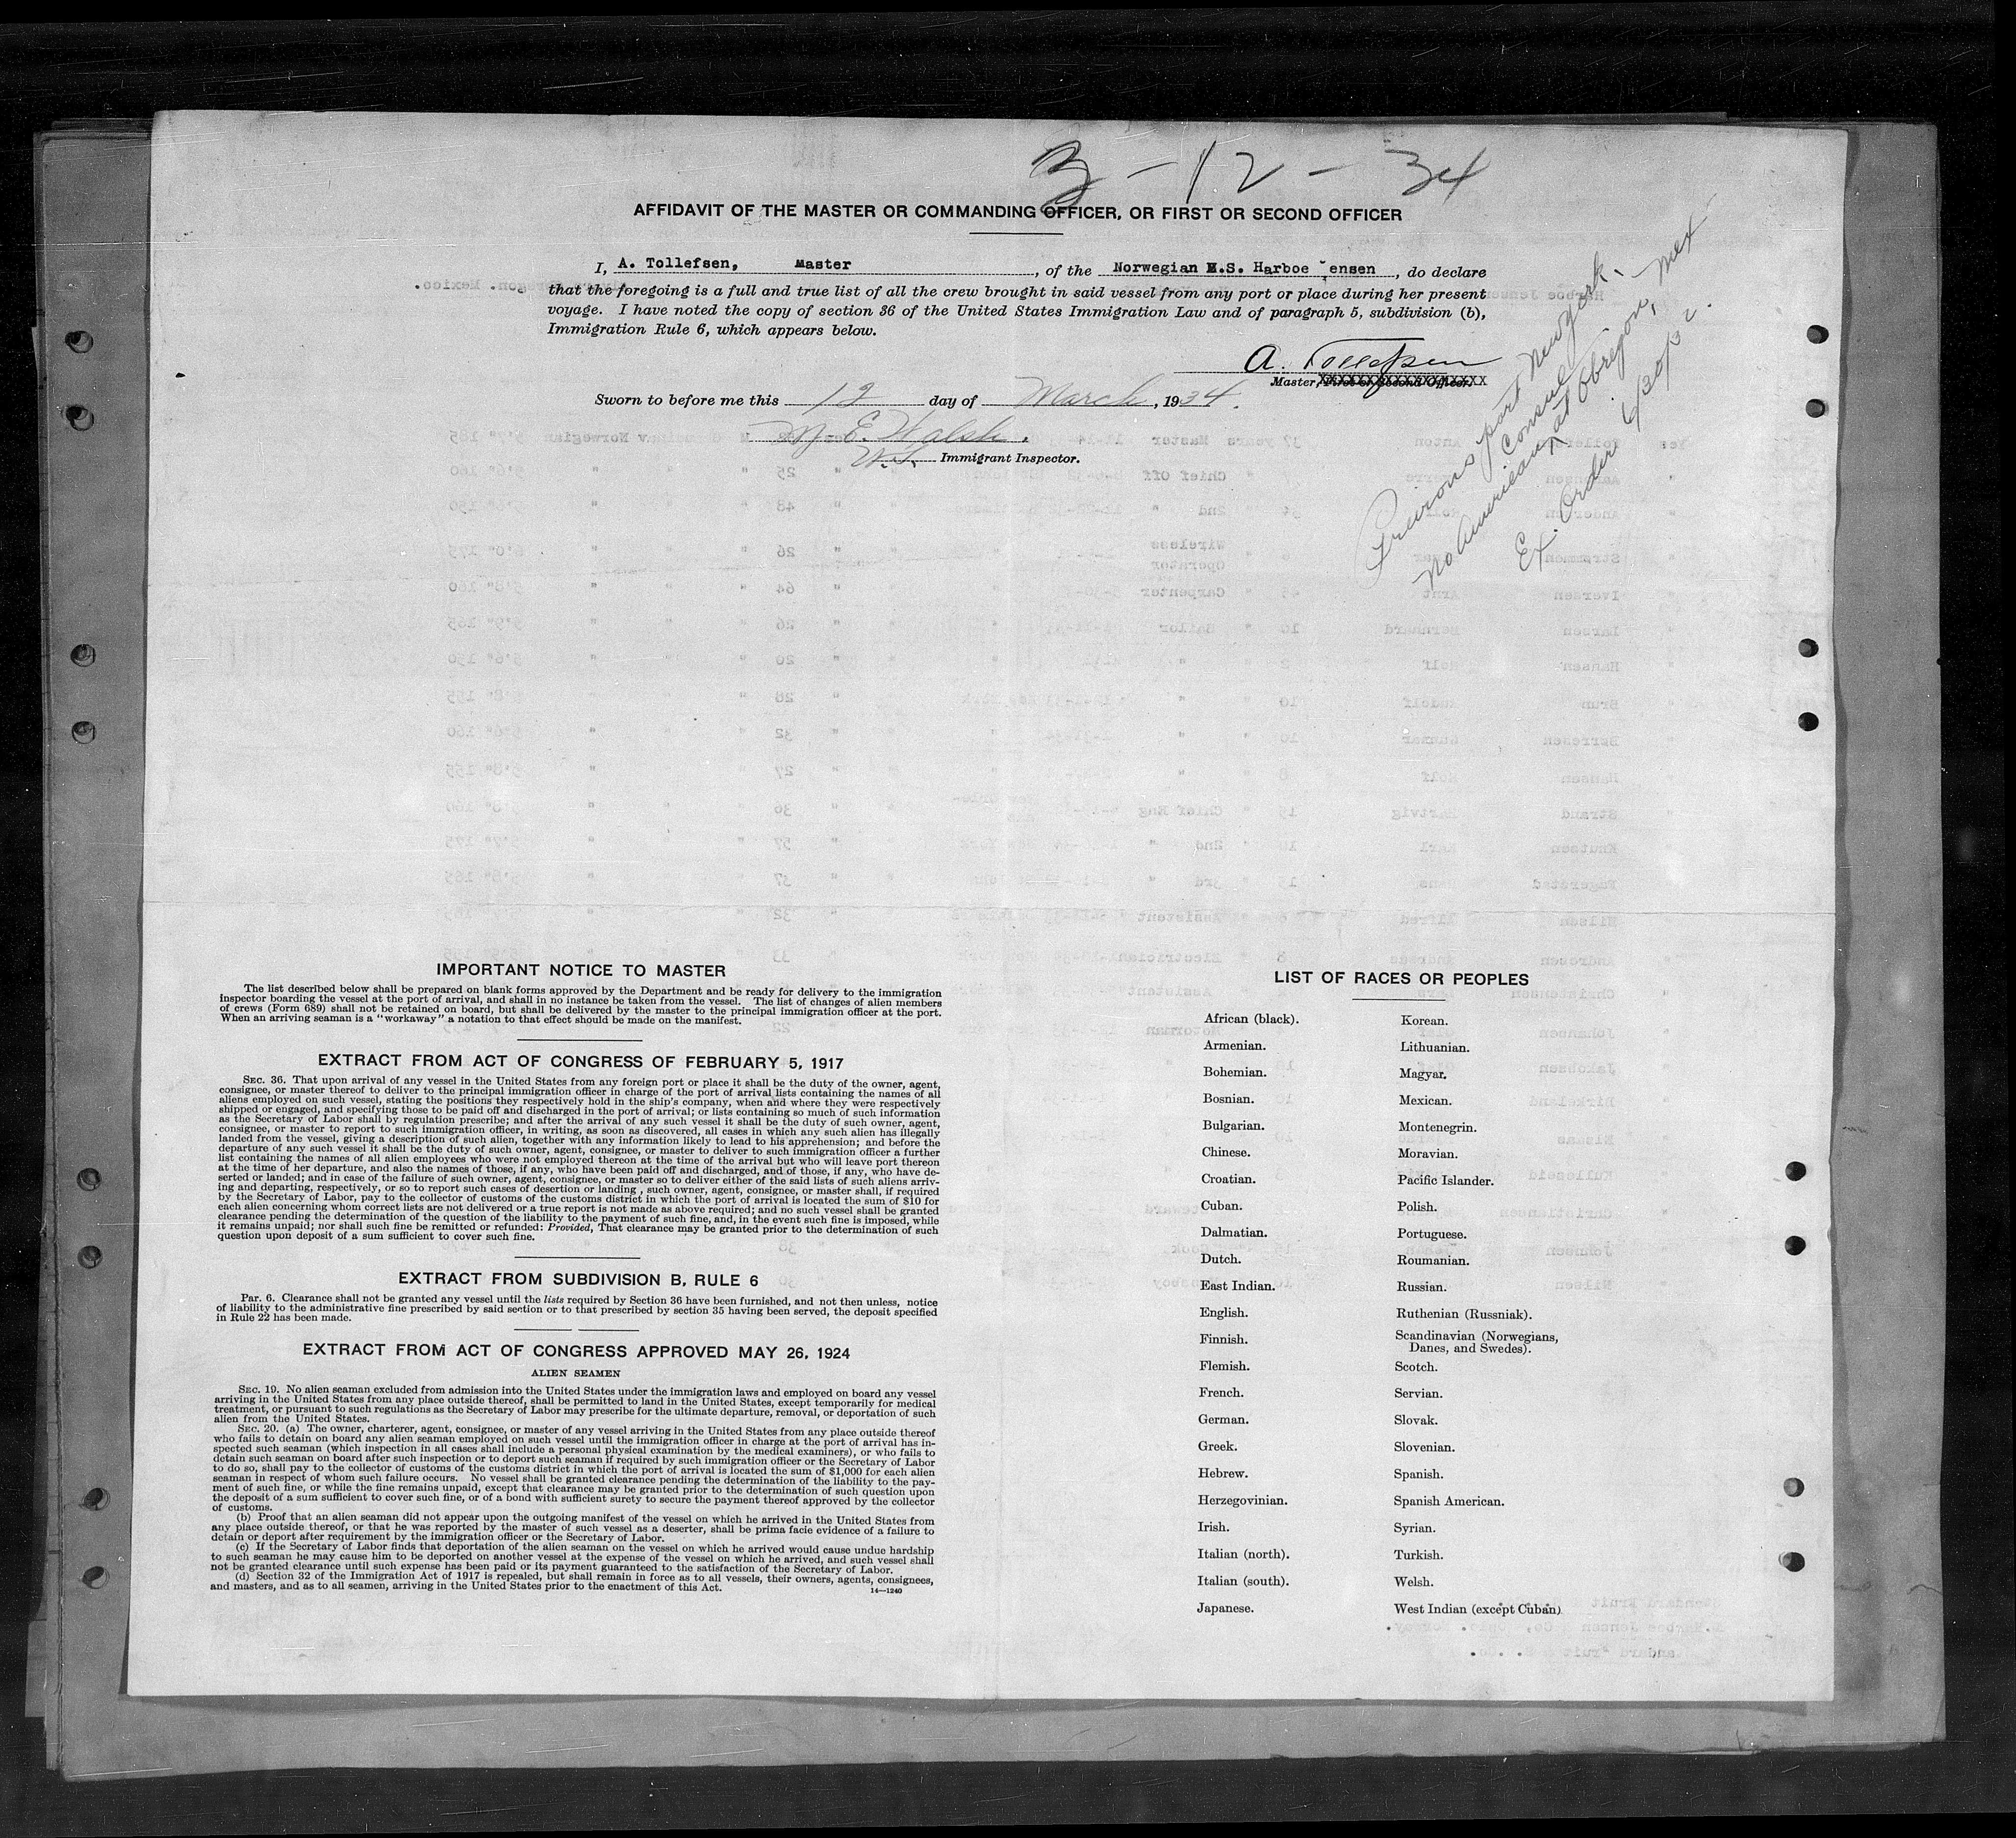 3-12-34
AFFIDAVIT OF THE MASTER OR COMMANDING OFFICER, OR FIRST OR SECOND OFFICER
I, A. Tollefsen, Master, of the Norwegian M.S. Harboe Jensen, do declare
that the foregoing is a full and true list of all the crew brought in said vessel from any port or place during her present
voyage. I have noted the copy of section 36 of the United States Immigration Law and of paragraph 5, subdivision (b),
Immigration Rule 6, which appears below.
A. Tollefsen
Master, First or Second Officer.
Sworn to before me this 12 day of March, 1934.
M. E. Walsh.
U.S. Immigrant Inspector.
Previous port New York.
No American Consul at Obregon, Mex
Ex. Order 6/30/32
IMPORTANT NOTICE TO MASTER
The list described below shall be prepared on blank forms approved by the Department and be ready for delivery to the immigration
inspector boarding the vessel at the port of arrival, and shall in no instance be taken from the vessel. The list of changes of alien members
of crews (Form 689) shall not be retained on board, but shall be delivered by the master to the principal immigration officer at the port.
When an arriving seaman is a "workaway" a notation to that effect should be made on the manifest.
EXTRACT FROM ACT OF CONGRESS OF FEBRUARY 5, 1917
SEC. 36. That upon arrival of any vessel in the United States from any foreign port or place it shall be the duty of the owner, agent,
consignee, or master thereof to deliver to the principal immigration officer in charge of the port of arrival lists containing the names of all
aliens employed on such vessel, stating the positions they respectively hold in the ship's company, when and where they were respectively
shipped or engaged, and specifying those to be paid off and discharged in the port of arrival; or lists containing so much of such information
as the Secretary of Labor shall by regulation prescribe; and after the arrival of any such vessel it shall be the duty of such owner, agent,
consignee, or master to report to such immigration officer, in writing, as soon as discovered, all cases in which any such alien has illegally
landed from the vessel, giving a description of such alien, together with any information likely to lead to his apprehension; and before the
departure of any such vessel it shall be the duty of such owner, agent, consignee, or master to deliver to such immigration officer a further
list containing the names of all alien employees who were not employed thereon at the time of the arrival but who will leave port thereon
at the time of her departure, and also the names of those, if any, who have been paid off and discharged, and of those, if any, who have de-
serted or landed; and in case of the failure of such owner, agent, consignee, or master so to deliver either of the said lists of such aliens arriv-
ing and departing, respectively, or so to report such cases of desertion or landing, such owner, agent, consignee, or master shall, if required
by the Secretary of Labor, pay to the collector of customs of the customs district in which the port of arrival is located the sum of $10 for
each alien concerning whom correct lists are not delivered or a true report is not made as above required; and no such vessel shall be granted
clearance pending the determination of the question of the liability to the payment of such fine, and, in the event such fine is imposed, while
it remains unpaid; nor shall such fine be remitted or refunded: Provided, That clearance may be granted prior to the determination of such
question upon deposit of a sum sufficient to cover such fine.
EXTRACT FROM SUBDIVISION B, RULE 6
PAR. 6. Clearance shall not be granted any vessel until the lists required by Section 36 have been furnished, and not then unless, notice
of liability to the administrative fine prescribed by said section or to that prescribed by section 35 having been served, the deposit specified
in Rule 22 has been made.
EXTRACT FROM ACT OF CONGRESS APPROVED MAY 26, 1924
ALIEN SEAMEN
SEC. 19. No alien seaman excluded from admission into the United States under the immigration laws and employed on board any vessel
arriving in the United States from any place outside thereof, shall be permitted to land in the United States, except temporarily for medical
treatment, or pursuant to such regulations as the Secretary of Labor may prescribe for the ultimate departure, removal, or deportation of such
alien from the United States.
SEC. 20. (a) The owner, charterer, agent, consignee, or master of any vessel arriving in the United States from any place outside thereof
who fails to detain on board any alien seaman employed on such vessel until the immigration officer in charge at the port of arrival has in-
spected such seaman (which inspection in all cases shall include a personal physical examination by the medical examiners), or who fails to
detain such seaman on board after such inspection or to deport such seaman if required by such immigration officer or the Secretary of Labor
to do so, shall pay to the collector of customs of the customs district in which the port of arrival is located the sum of $1,000 for each alien
seaman in respect of whom such failure occurs. No vessel shall be granted clearance pending the determination of the liability to the pay-
ment of such fine, or while the fine remains unpaid, except that clearance may be granted prior to the determination of such question upon
the deposit of a sum sufficient to cover such fine, or of a bond with sufficient surety to secure the payment thereof approved by the collector
of customs.
(b) Proof that an alien seaman did not appear upon the outgoing manifest of the vessel on which he arrived in the United States from
any place outside thereof, or that he was reported by the master of such vessel as a deserter, shall be prima facie evidence of a failure to
detain or deport after requirement by the immigration officer or the Secretary of Labor.
(c) If the Secretary of Labor finds that deportation of the alien seaman on the vessel on which he arrived would cause undue hardship
to such seaman he may cause him to be deported on another vessel at the expense of the vessel on which he arrived, and such vessel shall
not be granted clearance until such expense has been paid or its payment guaranteed to the satisfaction of the Secretary of Labor.
(d) Section 32 of the Immigration Act of 1917 is repealed, but shall remain in force as to all vessels, their owners, agents, consignees,
and masters, and as to all seamen, arriving in the United States prior to the enactment of this Act.
14—1240
LIST OF RACES OR PEOPLES
African (black).
Armenian.
Bohemian.
Bosnian.
Bulgarian.
Chinese.
Croatian.
Cuban.
Dalmatian.
Dutch.
East Indian.
English.
Finnish.
Flemish.
French.
German.
Greek.
Hebrew.
Herzegovinian.
Irish.
Italian (north).
Italian (south).
Japanese.
Korean.
Lithuanian.
Magyar.
Mexican.
Montenegrin.
Moravian.
Pacific Islander.
Polish.
Portuguese.
Roumanian.
Russian.
Ruthenian (Russniak).
Scandinavian (Norwegians,
Danes, and Swedes).
Scotch.
Servian.
Slovak.
Slovenian.
Spanish.
Spanish American.
Syrian.
Turkish.
Welsh.
West Indian (except Cuban)